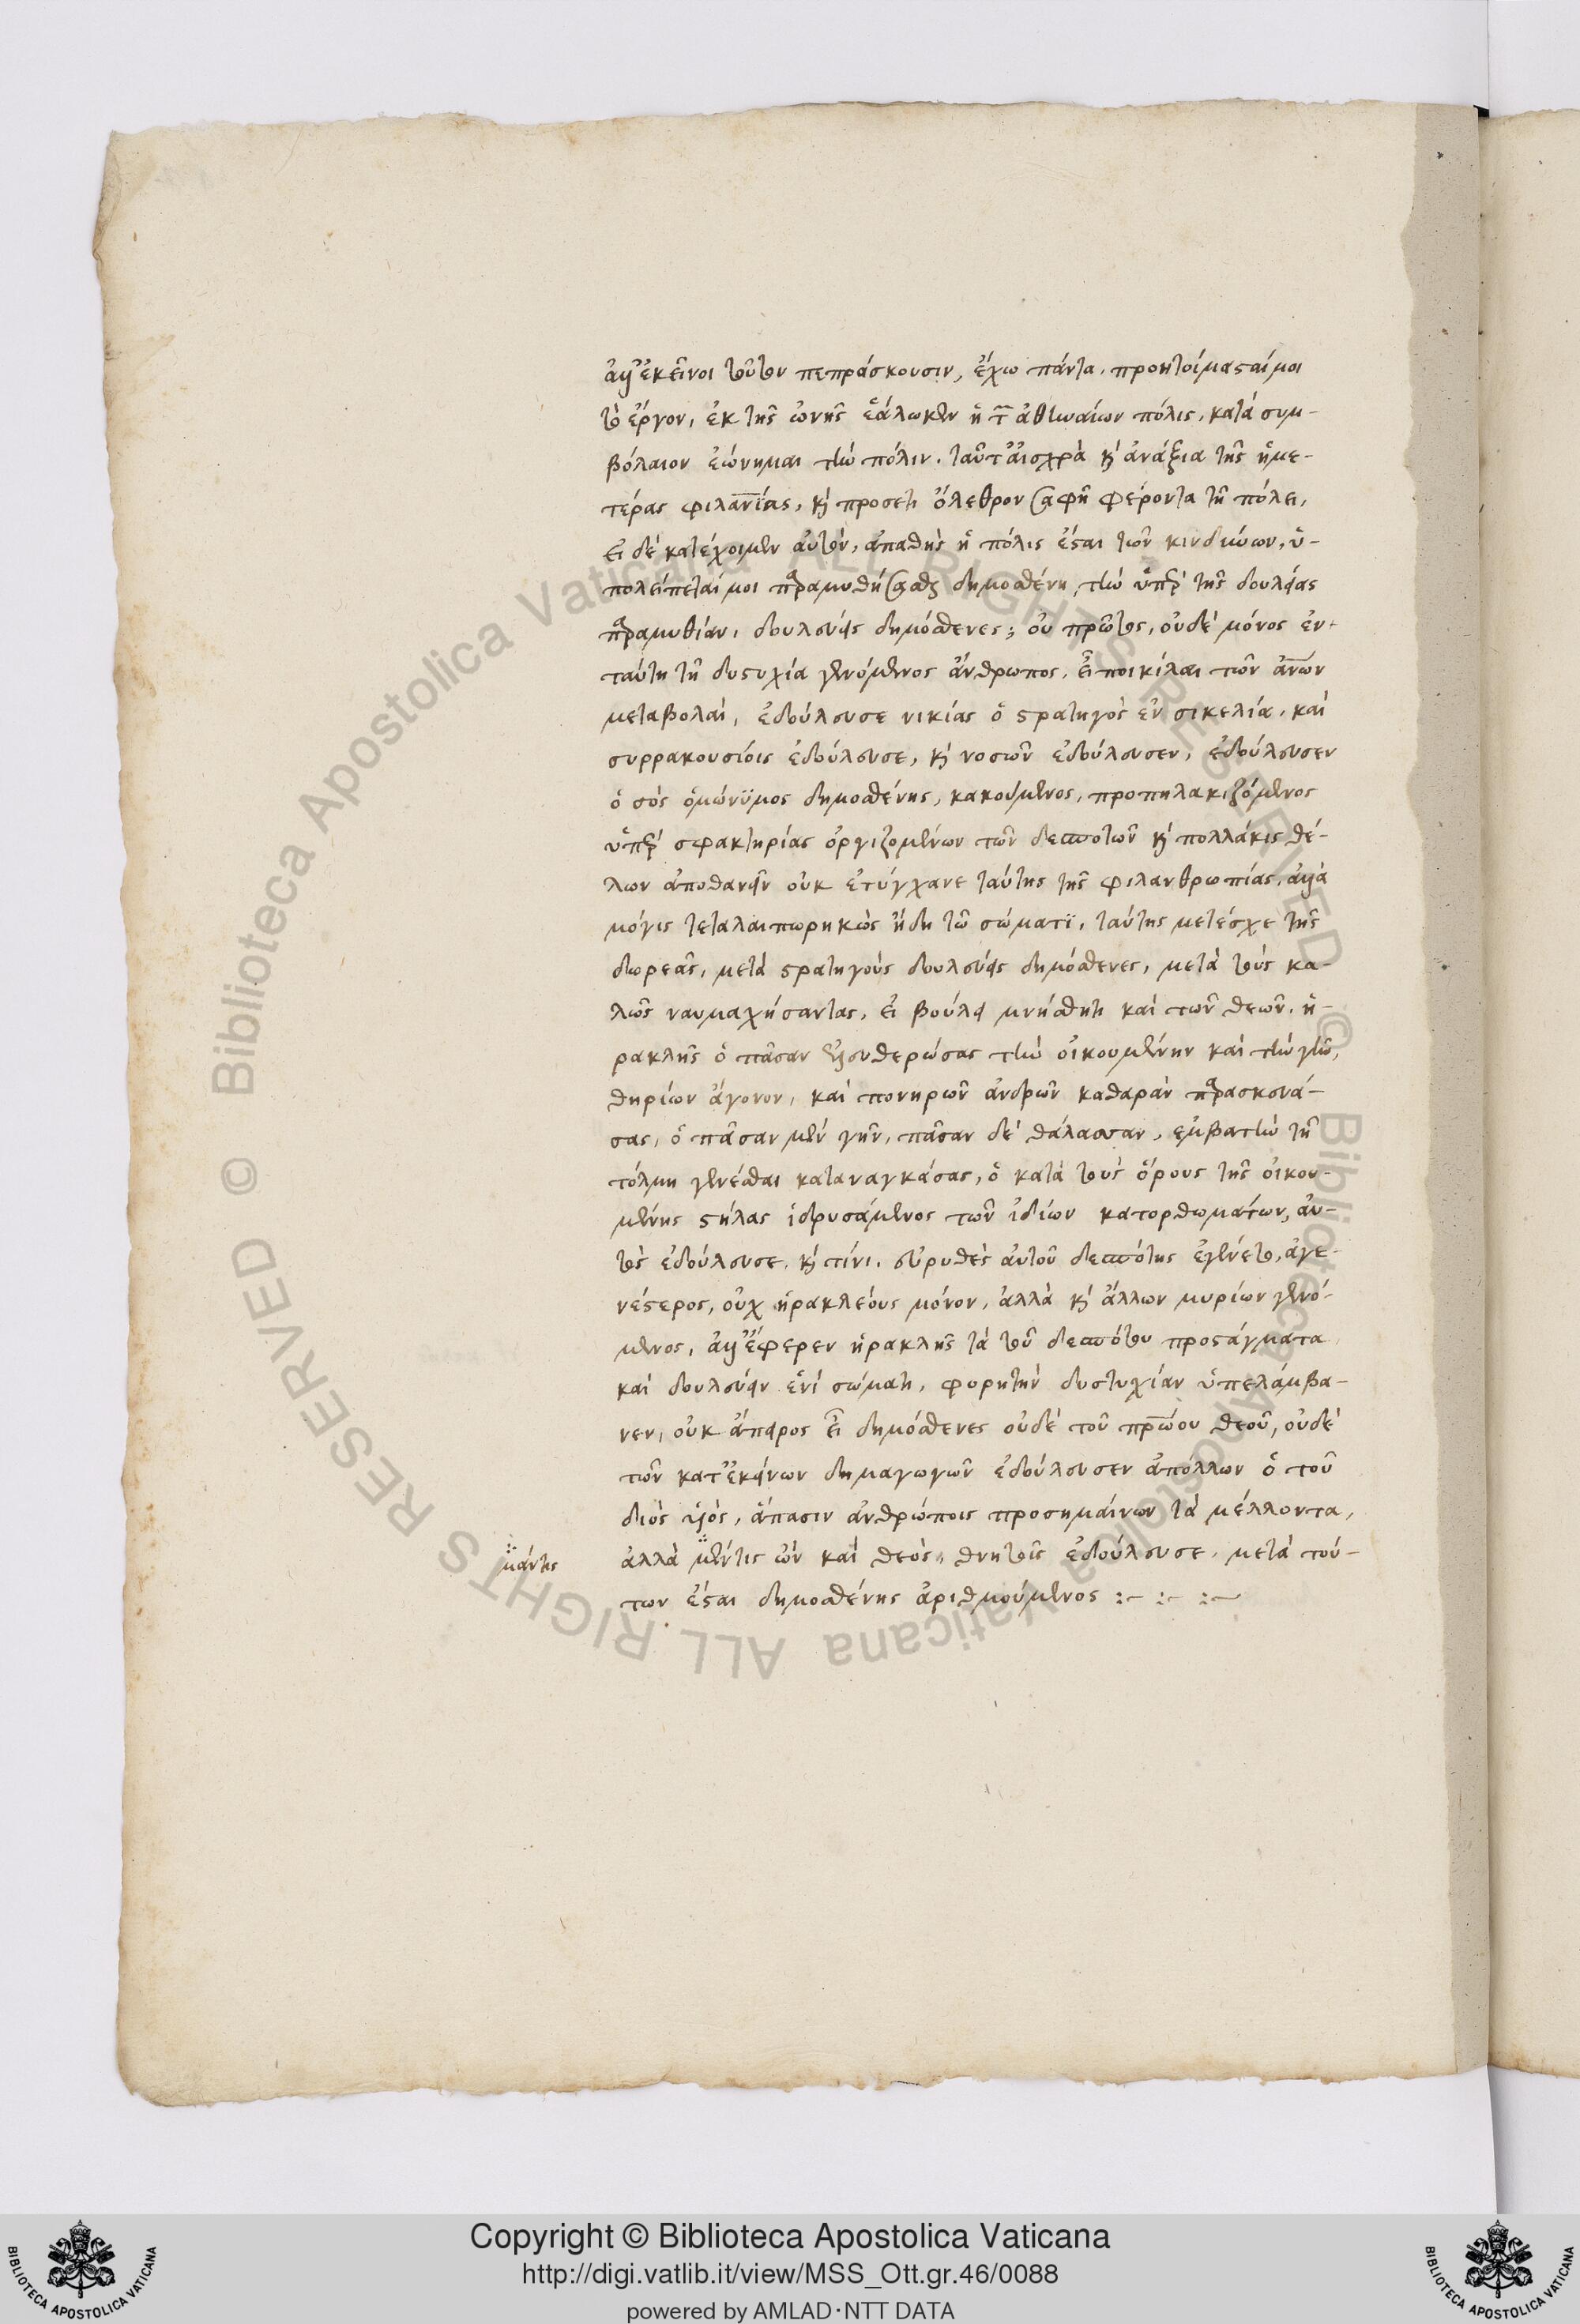 ἀλλ' ἐκεῖνοι τοῦτον πεπράσκουσιν, ἔχω πάντα, προητοίμασταί μοι
τὸ ἔργον, ἐκ τῆς ὠνῆς ἑάλωκεν ἡ τῶν ἀθηναίων πόλις, κατὰ συμ-
βόλαιον ἐώνημαι τὴν πόλιν. ταῦτ' αἰσχρὰ καὶ ἀνάξια τῆς ἡμε-
τέρας φιλανίας, καὶ προσέτι ὄλεθρον σαφῆ φέροντα τῇ πόλει,
εἰ δὲ κατέχοιμεν αὐτόν, ἀπαθὴς ἡ πόλις ἔσται τῶν κινδύνων, ὑ-
πολείπεταί μοι παραμυθήσασθαι δημοσθένη, τὴν ὑπὲρ τῆς δουλείας
παραμυθίαν, δουλεύεις δημόσθενες; οὐ πρῶτος, οὐδὲ μόνος ἐν-
ταύτη τῇ δυστυχία γενόμενος ἄνθρωπος, εἰ ποικίλαι τῶν ἀνων
μεταβολαί, ἐδούλευσε νικίας ὁ στρατηγὸς ἐν σικελία, καὶ
συρρακουσίοις ἐδούλευσε, καὶ νοσῶν ἐδούλευσεν, ἐδούλευσεν
ὁ σὸς ὁμώνϋμος δημοσθένης, κακούμενος, προπηλακιζόμενος
ὑπὲρ σφακτηρίας ὀργιζομένων τῶν δεσποτῶν καὶ πολλάκις θέ-
λων ἀποθανεῖν οὐκ ἐτύγχανε ταύτης τῆς φιλανθρωπίας, ἀλλὰ
μόγις τεταλαιπωρηκὼς ἤδη τῶ σώματϊ, ταύτης μετέσχε τῆς
δωρεᾶς, μετὰ στρατηγοὺς δουλεύεις δημόσθενες, μετὰ τοὺς κα-
λῶς ναυμαχήσαντας, εἰ βούλει μνήσθητι καὶ τῶν θεῶν, ἡ-
ρακλῆς ὁ πᾶσαν ἐλευθερώσας τὴν οἰκουμένην καὶ τὴν γῆν,
θηρίων ἄγονον, καὶ πονηρῶν ἀνδρῶν καθαρὰν παρασκευά-
σας, ὁ πᾶσαν μὲν γῆν, πᾶσαν δὲ θάλασσαν, ἐμβατὴν τῇ
τόλμη γενέσθαι καταναγκάσας, ὁ κατὰ τοὺς ὅρους τῆς οἰκου-
μένης στήλας ἱδρυσάμενος τῶν ἰδίων κατορθωμάτων, αὐ-
τὸς ἐδούλευσε, καὶ τίνι. εὐρυθεὺς αὐτοῦ δεσπότης ἐγένετο, ἀγε-
νέστερος, οὐχ ἡρακλέους μόνον, ἀλλὰ καὶ ἄλλων μυρίων γενό-
μενος, ἀλλ' ἔφερεν ἡρακλῆς τὰ τοῦ δεσπότου προστάγματα
καὶ δουλεύειν ἑνὶ σώματι, φορητὴν δυστυχίαν ὑπελάμβα-
νεν, οὐκ ἄπειρος εἶ δημόσθενες οὐδὲ τοῦ πρώου θεοῦ, οὐδὲ
τῶν κατ' ἐκείνων δημαγωγῶν ἐδούλευσεν ἀπόλλων ὁ τοῦ
διὸς υἱός, ἅπασιν ἀνθρώποις προσημαίνων τὰ μέλλοντα,
μάντις
ἀλλὰ μέντις ὢν καὶ θεός, θνητοῖς ἐδούλευσε, μετὰ τού-
των ἔσται δημοσθένης ἀριθμούμενος :~ :~ :~
Copyright © Biblioteca Apostolica Vaticana
http://digi.vatlib.it/view/MSS_Ott.gr.46/0088
powered by AMLAD·NTT DATA
BIBLIOTECA APOSTOLICA VATICANA
BIBLIOTECA APOSTOLICA VATICANA
© Biblioteca Apostolica Vaticana ALL RIGHTS RESERVED © Biblioteca Apostolica Vaticana ALL RIGHTS RESERVED